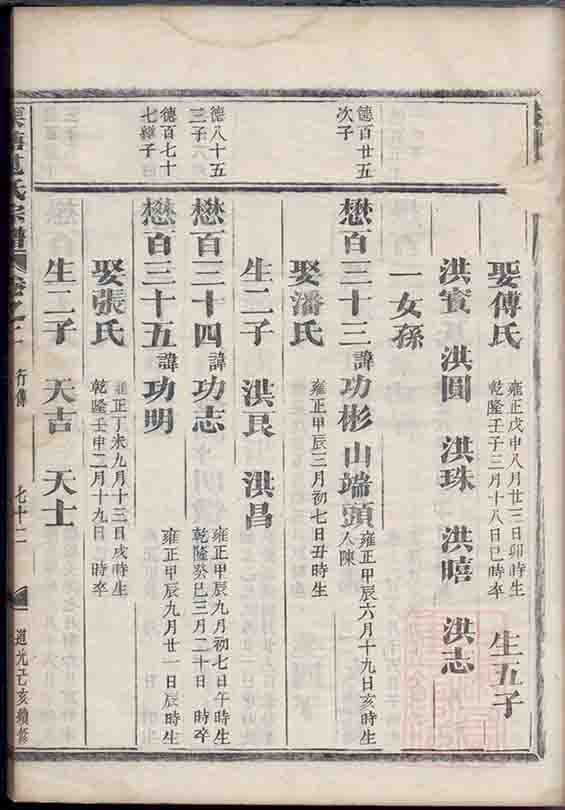 娶傅氏 雍正戊申八月廿三日卯時生 乾隆壬子三月十八日巳時卒 生五子
洪賓 洪圓 洪珠 洪暿 洪志
一女孫
德百廿五次子
懋百三十三諱功彬 山端頭人陳 雍正甲辰六月十九日亥時生
娶潘氏 雍正甲辰三月初七日丑時生
生二子 洪良 洪昌
德八十五三子
懋百三十四諱功志 雍正甲辰九月初七日午時生 乾隆癸巳三月二十日 時卒
德百七十七繼子
懋百三十五諱功明 雍正甲辰九月廿一日辰時生
娶張氏 雍正丁未九月十三日戌時生 乾隆壬申二月十九日 時卒
生二子 天吉 天士
氏宗譜 卷之二 行傳 七十二 道光己亥續修